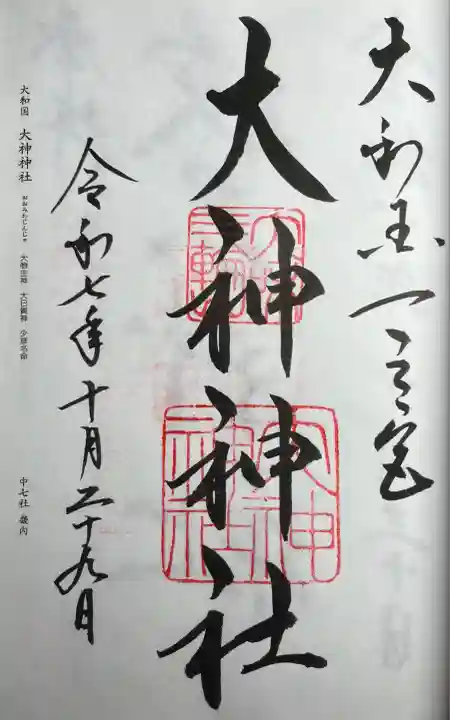 大和国一之宮
大神神社
三輪
大神
神社
令和七年十月二十九日
大和国 大神神社 おおみわじんじゃ 大物主神 大己貴神 少彦名命
中七社 畿内